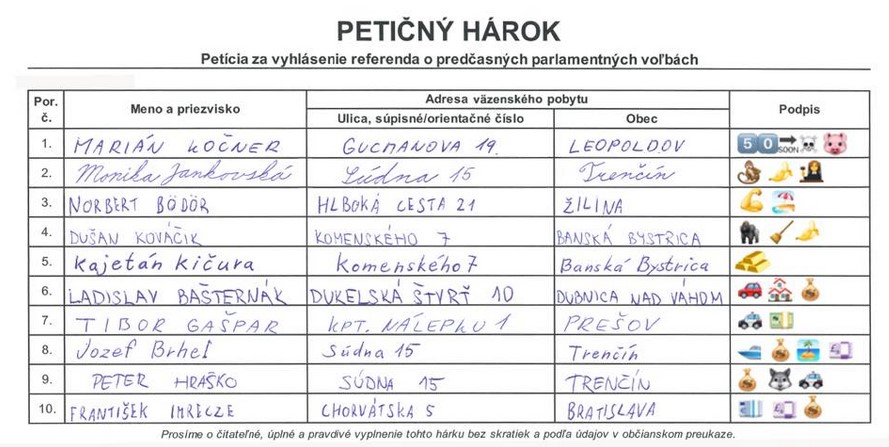 PETIČNÝ HÁROK
Petícia za vyhlásenie referenda o predčasných parlamentných voľbách
Por. č. Meno a priezvisko Adresa väzenského pobytu Podpis
Ulica, súpisné/orientačné číslo Obec
1. MARIÁN KOČNER GUCMANOVA 19. LEOPOLDOV 5 0 SOON
2. Monika Jankovská Súdna 15 Trenčín
3. NORBERT BÖDÖR HLBOKÁ CESTA 21 ŽILINA
4. DUŠAN KOVÁČIK KOMENSKÉHO 7 BANSKÁ BYSTRICA
5. Kajetán Kičura Komenského 7 Banská Bystrica
6. LADISLAV BAŠTERNÁK DUKELSKÁ ŠTVRŤ 10 DUBNICA NAD VÁHOM
7. TIBOR GAŠPAR KPT. NÁLEPKU 1 PREŠOV
8. Jozef Brhel Súdna 15 Trenčín
9. PETER HRAŠKO SÚDNA 15 TRENČÍN
10. FRANTIŠEK IMRECZE CHORVÁTSKA 5 BRATISLAVA
Prosíme o čitateľné, úplné a pravdivé vyplnenie tohto hárku bez skratiek a podľa údajov v občianskom preukaze.